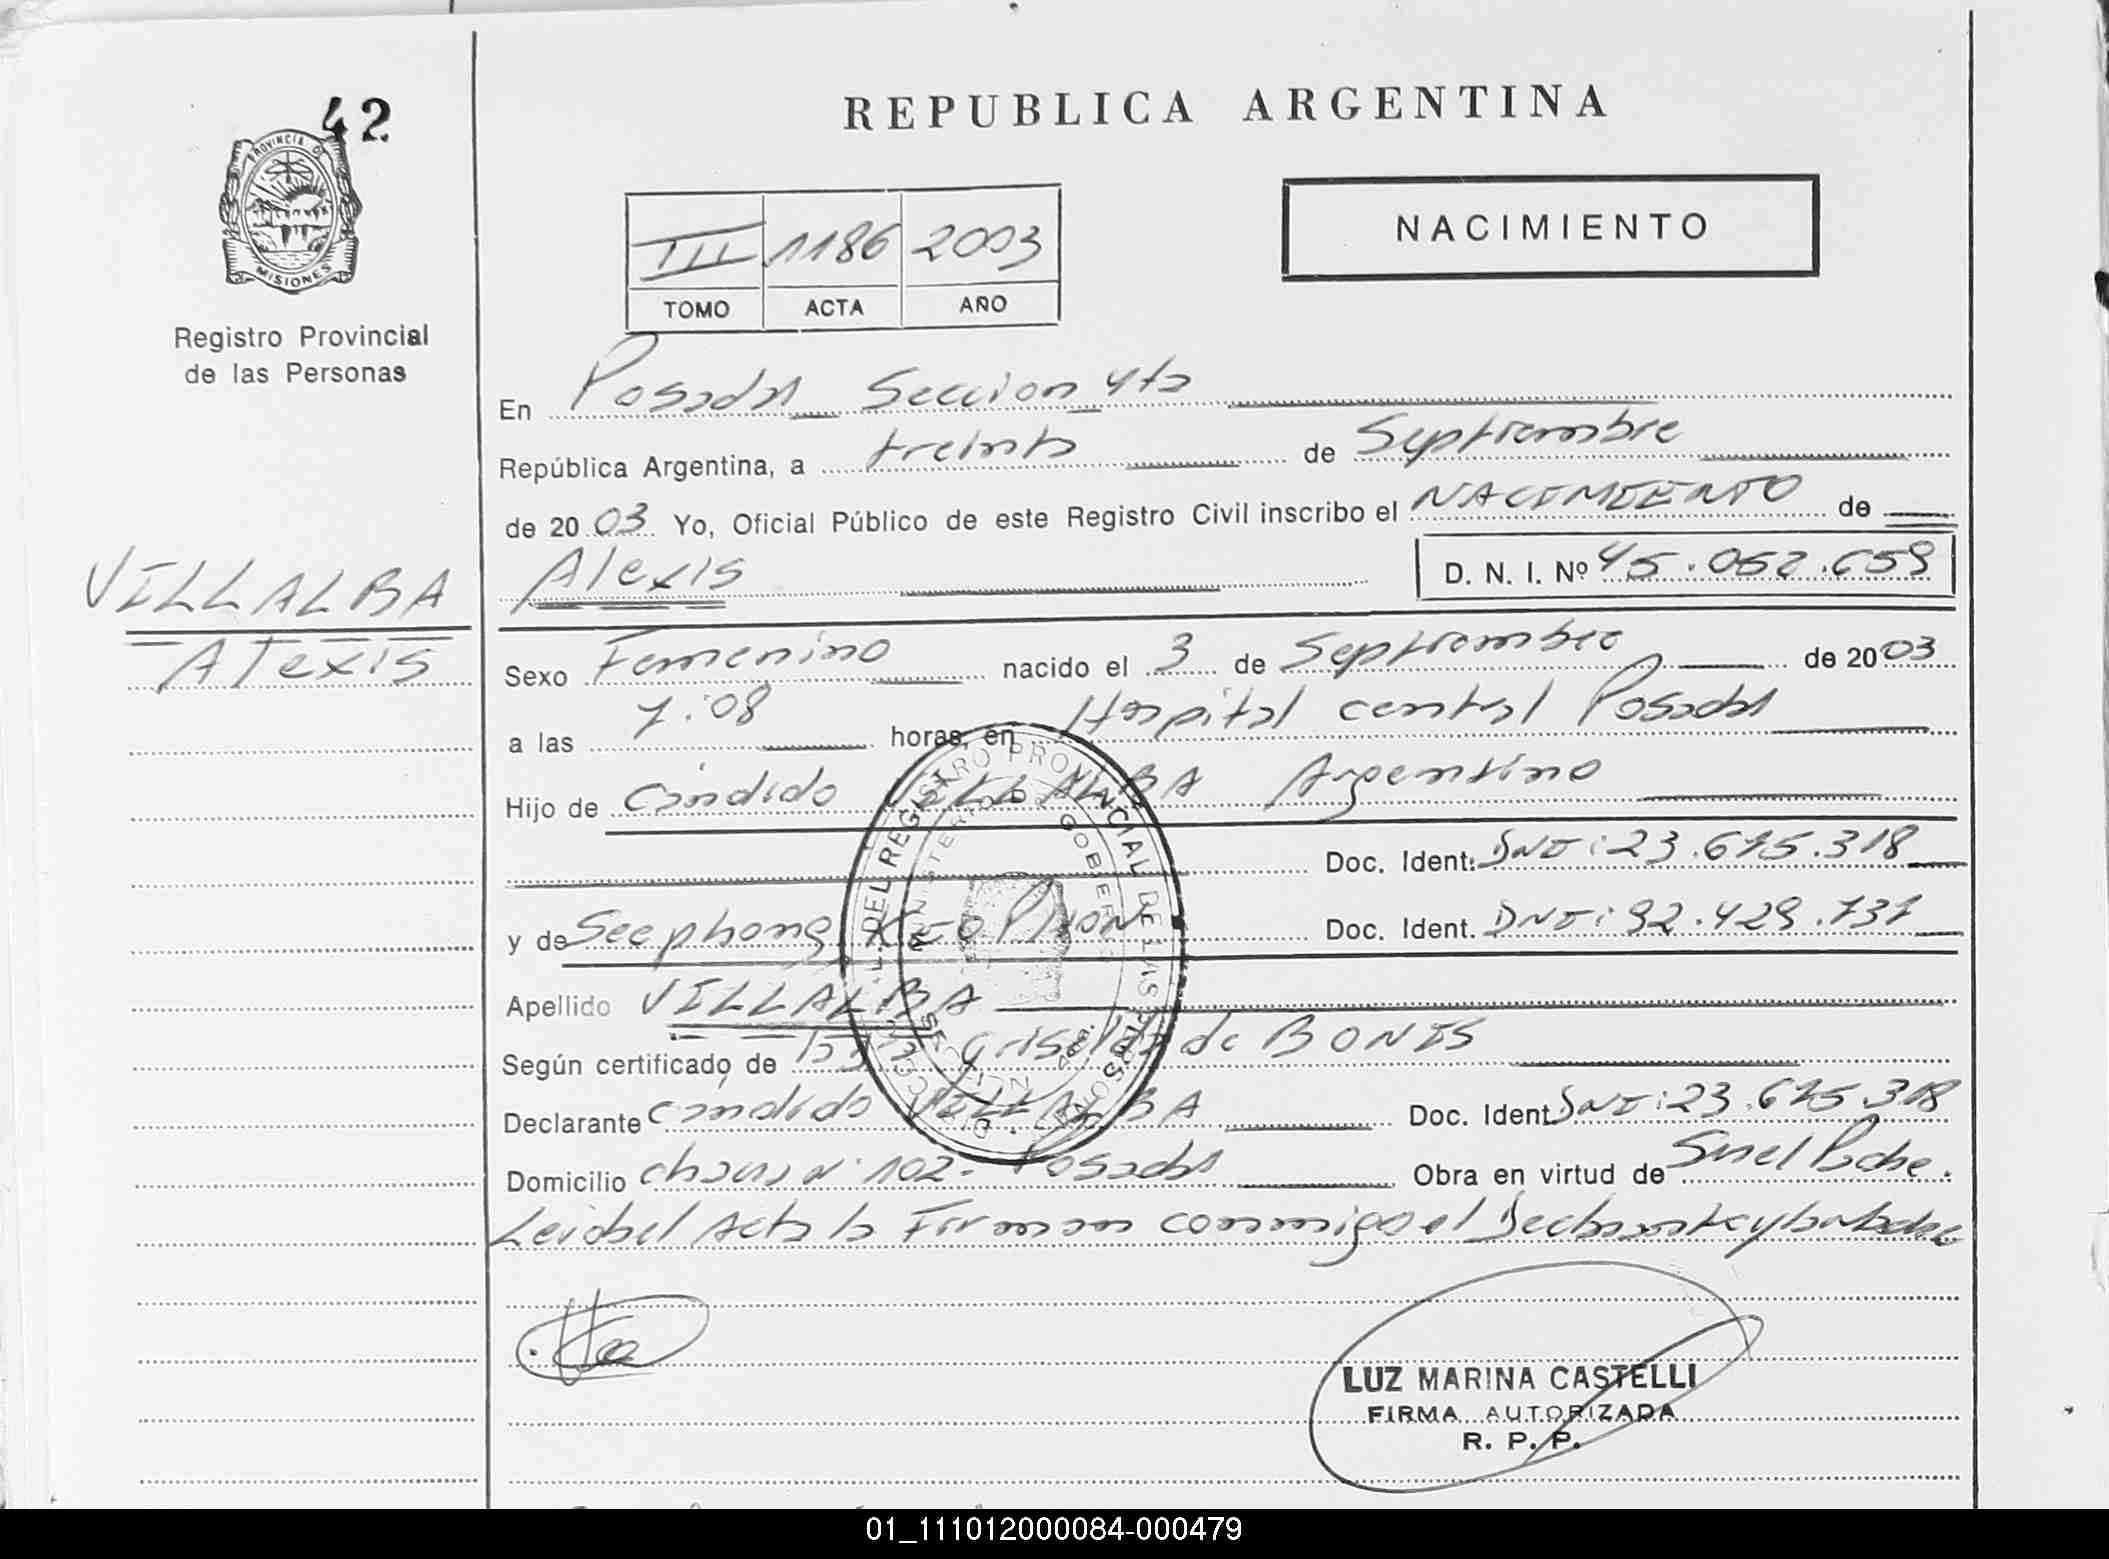 42
PROVINCIA D
MISIONES
Registro Provincial
de las Personas
VILLALBA
Alexis
REPUBLICA ARGENTINA
III 1186 2003
TOMO ACTA AÑO
NACIMIENTO
En Posadas Seccion 4ta
República Argentina, a treinta de Septiembre
de 2003 Yo, Oficial Público de este Registro Civil inscribo el NACIMIENTO de
Alexis D. N. I. Nº 45.062.659
Sexo Femenino nacido el 3 de Septiembre de 2003
a las 7:08 horas, en Hospital central Posadas
Hijo de Cándido VILLALBA Argentino
Doc. Ident: DNI: 23.675.318
y de Seephong KEO PHON Doc. Ident. DNI: 92.429.737
Apellido VILLALBA
Según certificado de Griselda de BONIS
Declarante Candido VILLALBA Doc. Ident DNI: 23.675.318
Domicilio chacra n: 102- Posadas Obra en virtud de
Leida el Acta la Firman conmigo el Declarante y
LUZ MARINA CASTELLI
FIRMA AUTORIZADA
R. P. P.
01_111012000084-000479